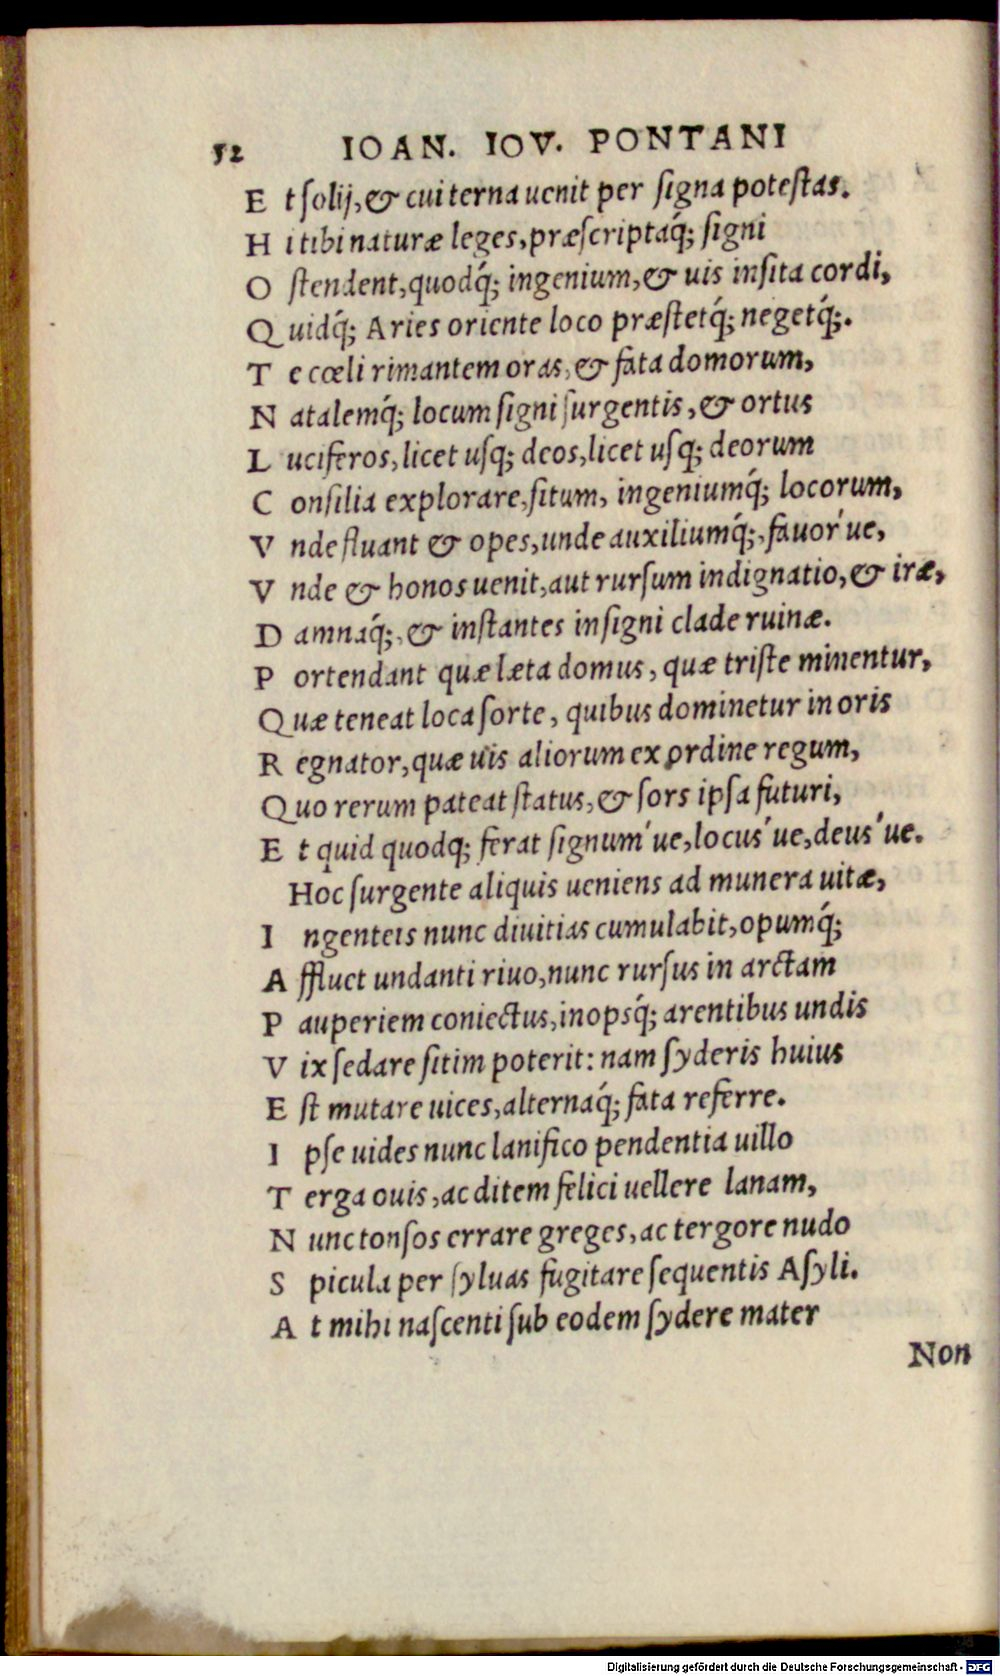 52 IOAN. IOV. PONTANI
E t ſolij, & cui terna uenit per ſigna poteſtas.
H i tibi naturæ leges, præſcriptaq́; ſigni
O ſtendent, quodq́; ingenium, & uis inſita cordi,
Q uidq́; Aries oriente loco præſtetq́; negetq́;.
T e cœli rimantem oras, & fata domorum,
N atalemq́; locum ſigni ſurgentis, & ortus
L uciferos, licet uſq; deos, licet uſq; deorum
C onſilia explorare, ſitum, ingeniumq́; locorum,
V nde fluant & opes, unde auxiliumq́;, fauor'ue,
V nde & honos uenit, aut rurſum indignatio, & iræ,
D amnaq́;, & inſtantes inſigni clade ruinæ.
P ortendant quæ læta domus, quæ triſte minentur,
Q uæ teneat loca ſorte, quibus dominetur in oris
R egnator, quæ uis aliorum ex ordine regum,
Q uo rerum pateat ſtatus, & ſors ipſa futuri,
E t quid quodq; ferat ſignum'ue, locus'ue, deus'ue.
Hoc ſurgente aliquis ueniens ad munera uitæ,
I ngenteis nunc diuitias cumulabit, opumq́;
A ffluet undanti riuo, nunc rurſus in arctam
P auperiem coniectus, inopsq́; arentibus undis
V ix ſedare ſitim poterit: nam ſyderis huius
E ſt mutare uices, alternaq́; fata referre.
I pſe uides nunc lanifico pendentia uillo
T erga ouis, ac ditem felici uellere lanam,
N unc tonſos errare greges, ac tergore nudo
S picula per ſyluas fugitare ſequentis Aſyli.
A t mihi naſcenti ſub eodem ſydere mater
Non
Digitalisierung gefördert durch die Deutsche Forschungsgemeinschaft - DFG